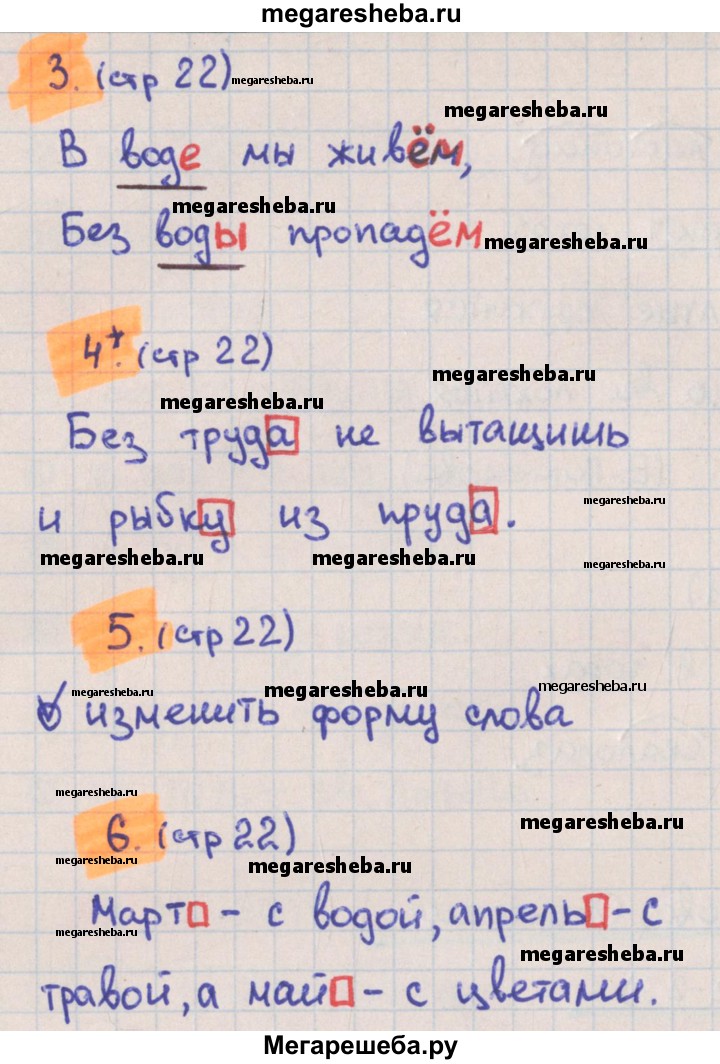 megaresheba.ru
3. (стр 22)
megaresheba.ru
megaresheba.ru
В воде мы живём,
megaresheba.ru
Без воды пропадём
megaresheba.ru
4*. (стр 22)
megaresheba.ru
megaresheba.ru
Без труда не вытащишь
megaresheba.ru
и рыбку из пруда.
megaresheba.ru
megaresheba.ru
megaresheba.ru
5. (стр 22)
megaresheba.ru
megaresheba.ru
megaresheba.ru
изменить форму слова
megaresheba.ru
6. (стр 22)
megaresheba.ru
megaresheba.ru
megaresheba.ru
Март - с водой, апрель - с
megaresheba.ru
megaresheba.ru
травой, а май - с цветами.
Мегарешеба.ру